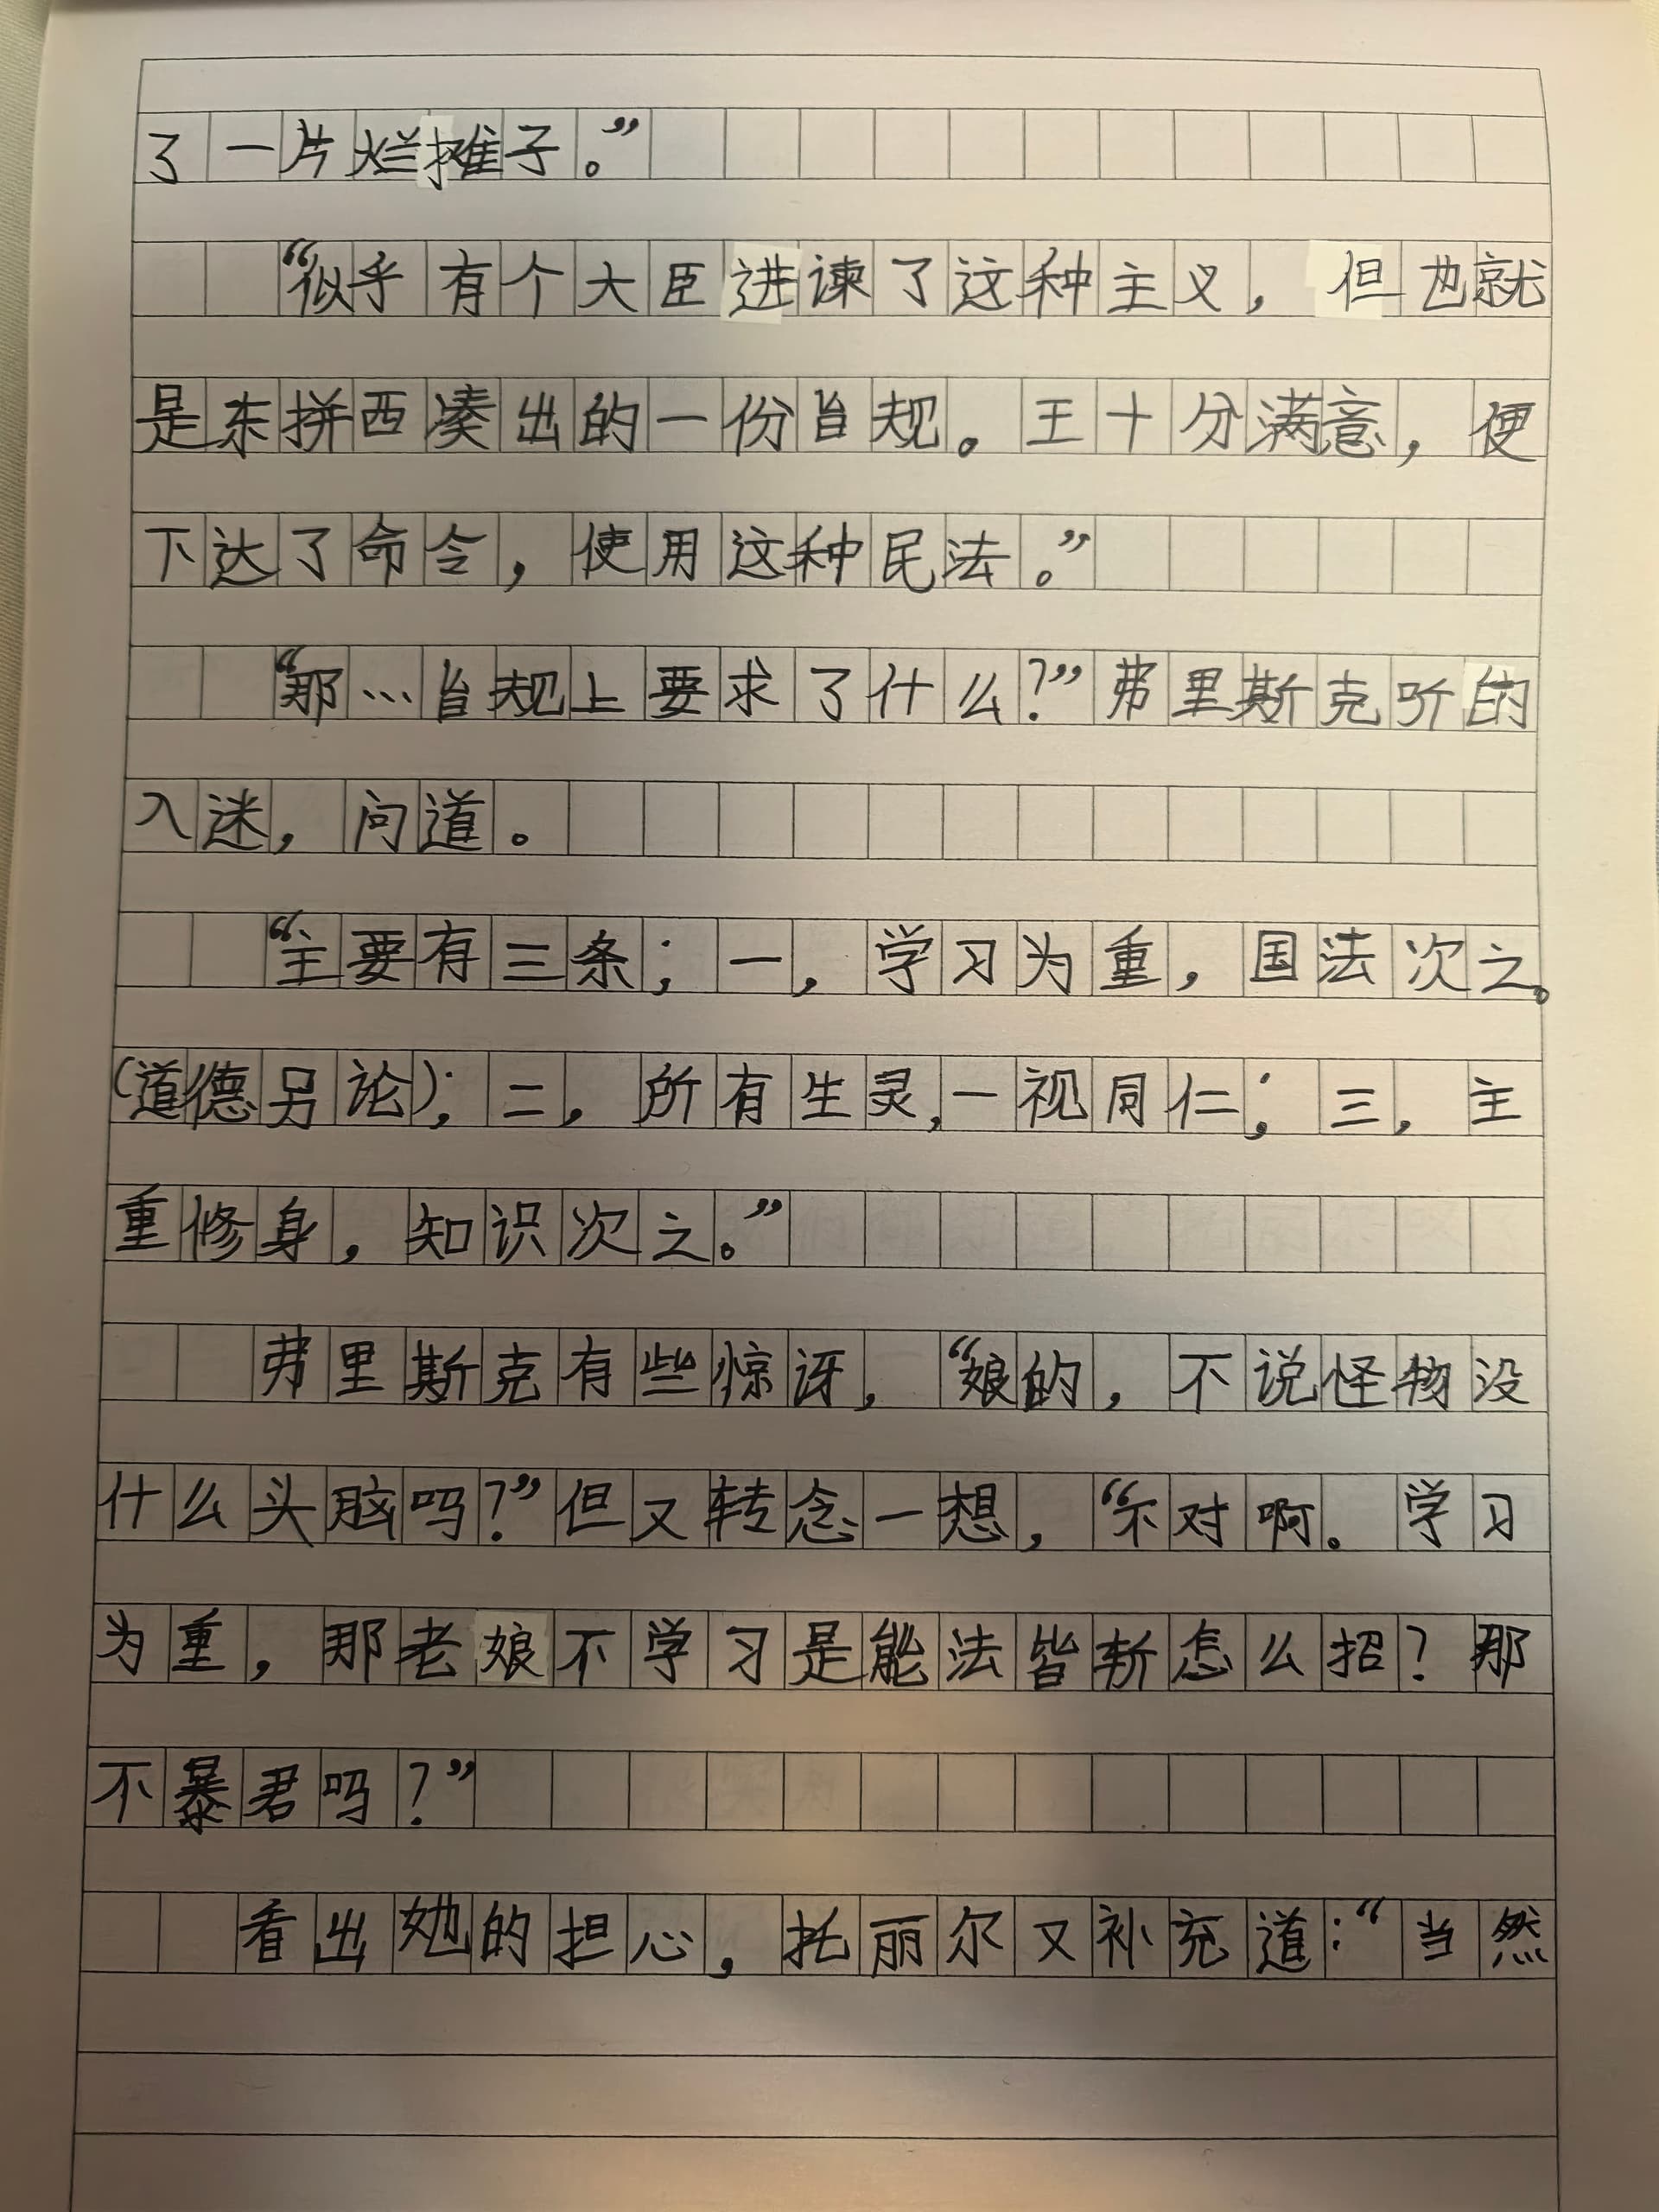 了一片烂摊子。”
“似乎有个大臣进谏了这种主义，但也就
是东拼西凑出的一份旨规。王十分满意，便
下达了命令，使用这种民法。”
“那…旨规上要求了什么？”弗里斯克听的
入迷，问道。
“主要有三条；一，学习为重，国法次之。
（道德另论）；二，所有生灵，一视同仁；三，主
重修身，知识次之。”
弗里斯克有些惊讶，“娘的，不说怪物没
什么头脑吗？”但又转念一想，“不对啊。学习
为重，那老娘不学习是能法皆斩怎么招？那
不暴君吗？”
看出她的担心，托丽尔又补充道：“当然